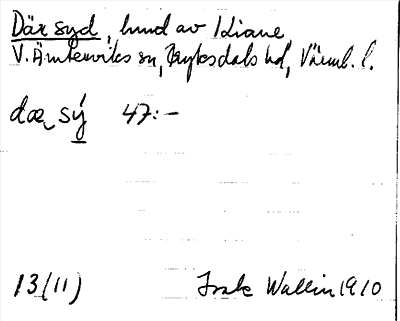 Där syd, lund av Kliane
V. Ämterviks sn, Fryksdals hd, Värml. l.
dæ sý 47:-
13(11) Isak Wallin 1910